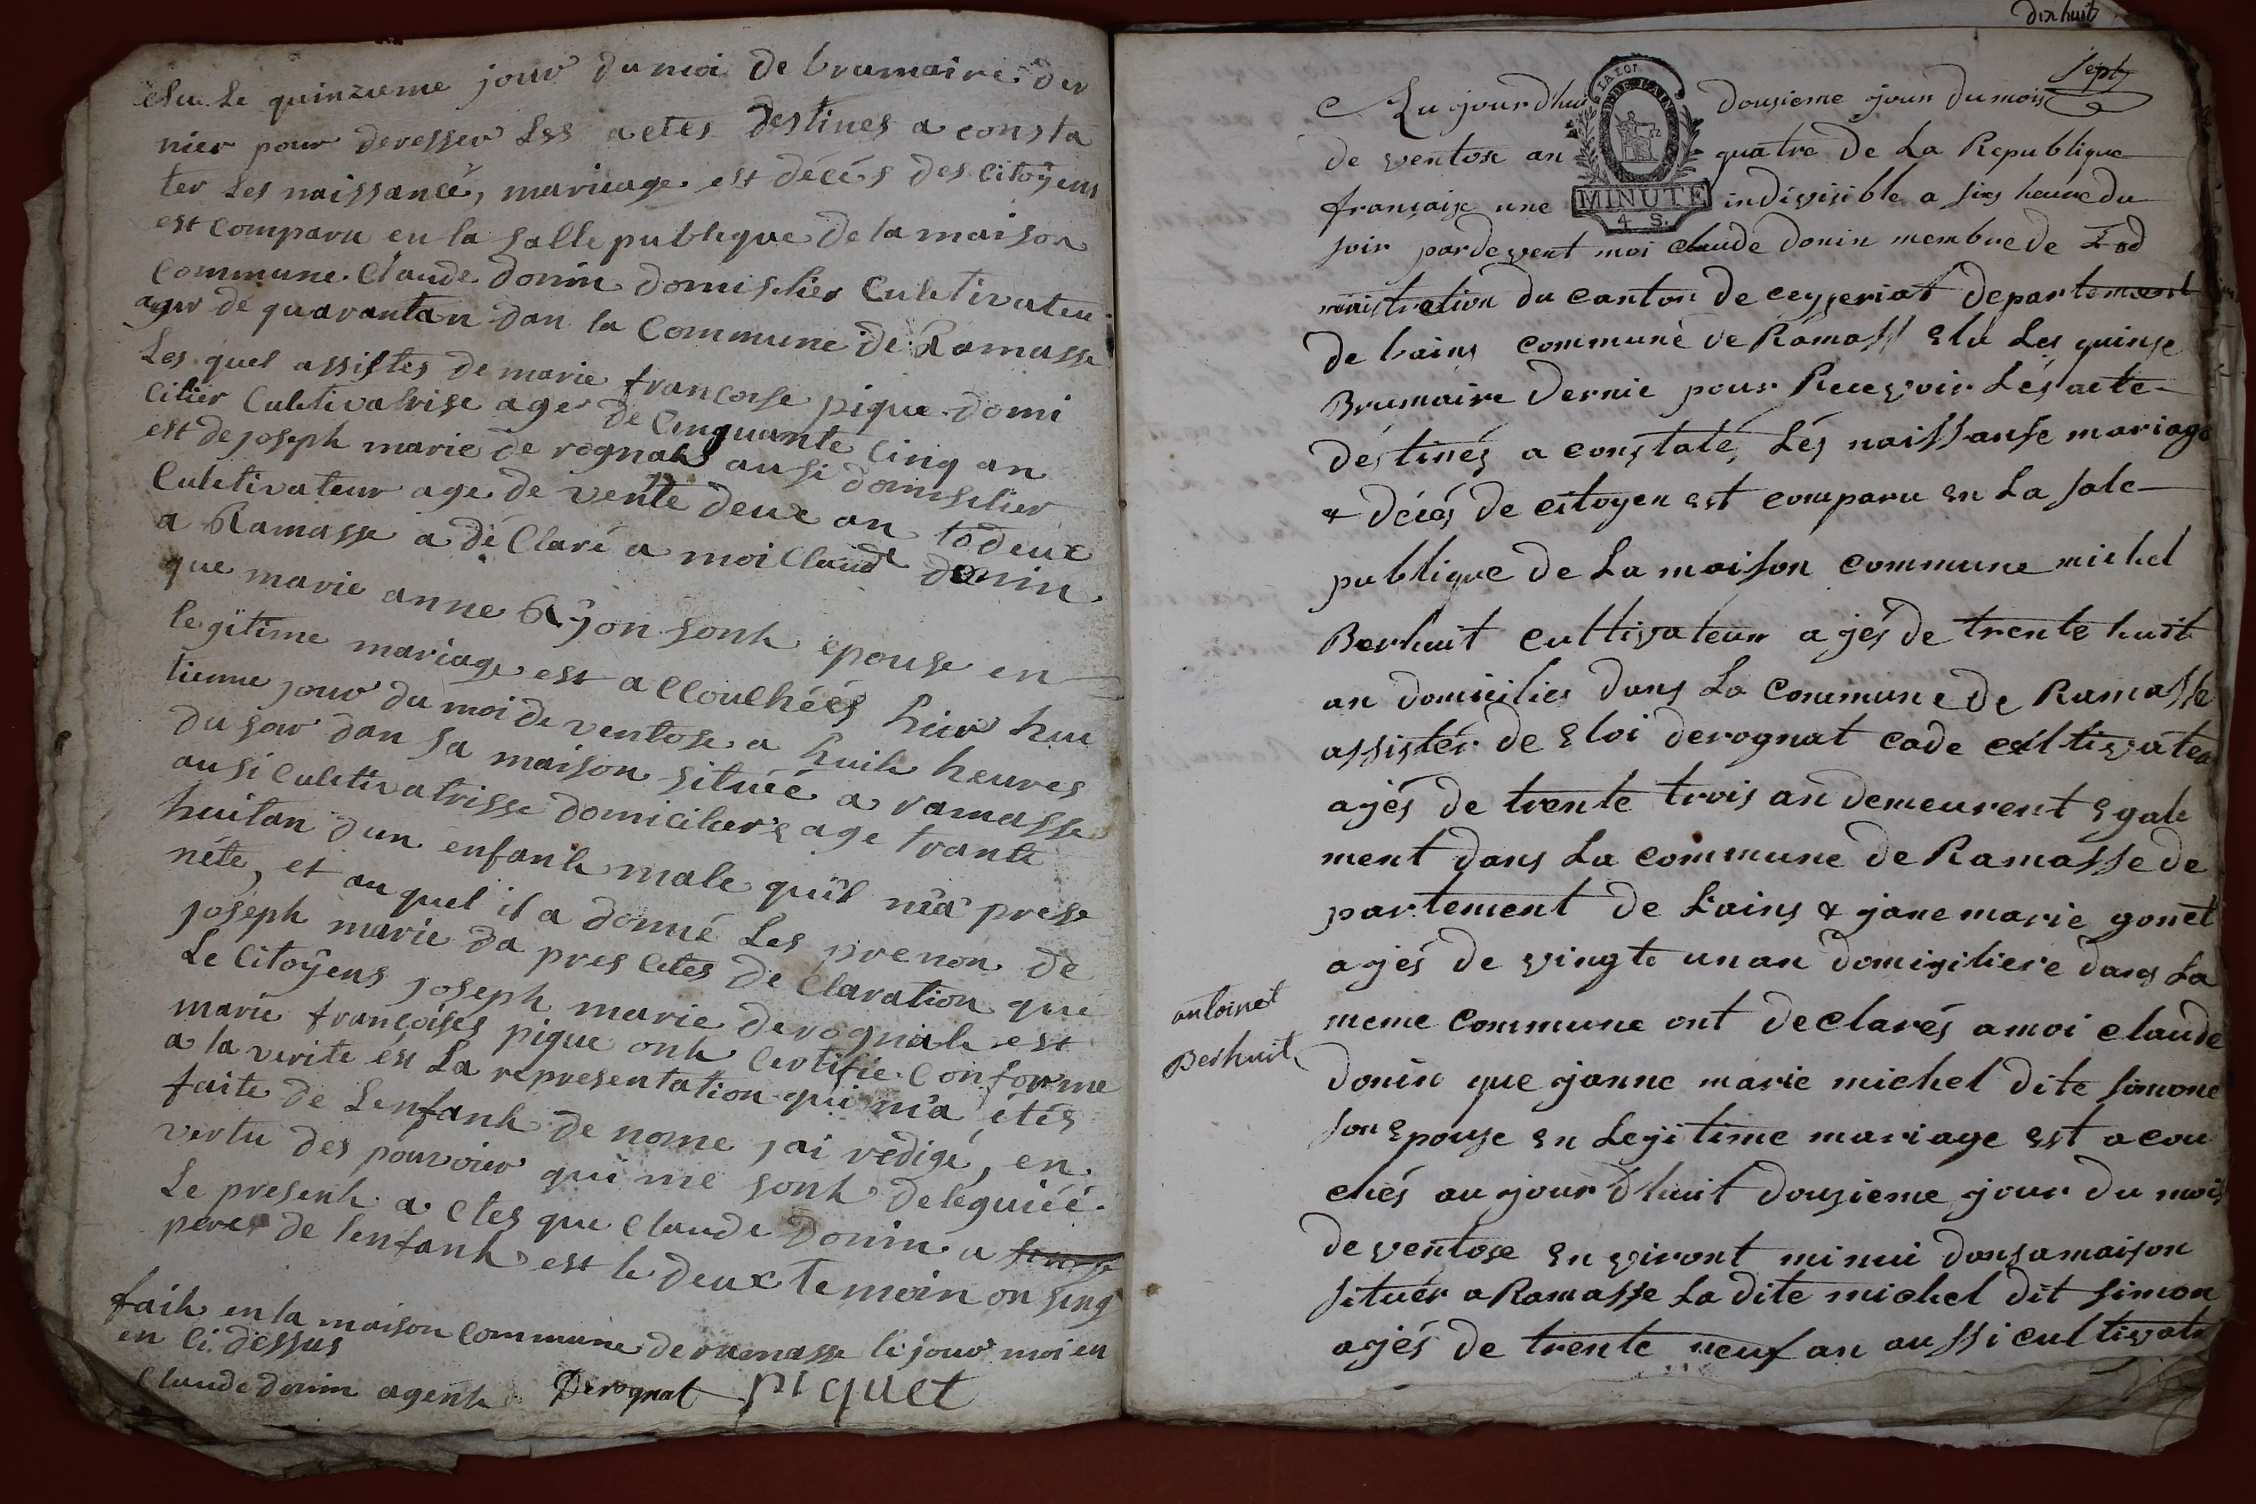 elu Le quinzieme jour du moi de brumaire der
nier pour deresser Les actes destines a consta
ter Les naissance, mariage est décés des citoÿens
est comparu en la salle publique de la maison
commune Claude donin domisilier Culetivateu
ager de quarantan dan la Commune de Ramasse
Les quel assistes de marie francoise pique domi
cilier Culetivatrise ager de Cinquante Cinq an
est de joseph marie de rognat ausi domisilier
Culetivateur age de vente deux an to deux
a Ramasse a déClaré a moi Claude donin
que marie anne Rÿon sonh epouse en
legitime mariage est allouchéés hier hui
tieme jour du moi de ventose a huih heures
du soir dan sa maison situéé a ramasse
ausi culetivatrisse domicilier age trante
huitan dun enfanh male quil ma prese
néte, et au quel il a donné Les prenon de
joseph marie da pres Cetes de Claration que
Le Citoÿens joseph marie derognah est
marie françoises pique onh Certifie Conforme
a la verite est La representation qui m'a étés
faite de Lenfanh de nome jai redigé, en
vertu des pouvoier qui me sonh deléguiéé
Le presenh actes que Claude donin a
peres de lenfanh est le deux temoin on sing
faih en la maison Commune de ramasse le jour moi en
en Ci dessus
Claude donin agenh Derognat piquet
dix huit
sept
Au jourdhui dousieme jour du mois
de ventose an quatre de La Republique
française une indivisible a sixs heure du
LA LOI
MINUTE
4 S.
soir pardevent moi claude donin membre de Lad
ministration du canton de ceyzeriat departement
de lains commune de Ramass elu Les quinse
Brumaire dernie pour Recevoir Lés acte
déstinés a constaté, Lés naissanse mariage
& décés de citoyen est comparu en La sale
publique de La maison commune michel
Berhuit cultivateur ajés de trente huit
an domicilier dans La commune de Ramasse
assistér de Eloi derognat cade cultivateu
ajés de trente trois an demeurent Egale
ment dans La commune de Ramasse de
partement de Lains & jane marie gonet
ajés de vingte un an domisiliere dans La
meme commune ont declarés a moi claude
antoinet
Berhuit
donin que janne marie michel dite simone
son Epouse en Legitime mariage est acou
chés au jour dhuit dousieme jour du mois
de ventose en viront minui dansa maison
situér a Ramasse La dite michel dit simon
ajés de trente neuf an aussi cultivate